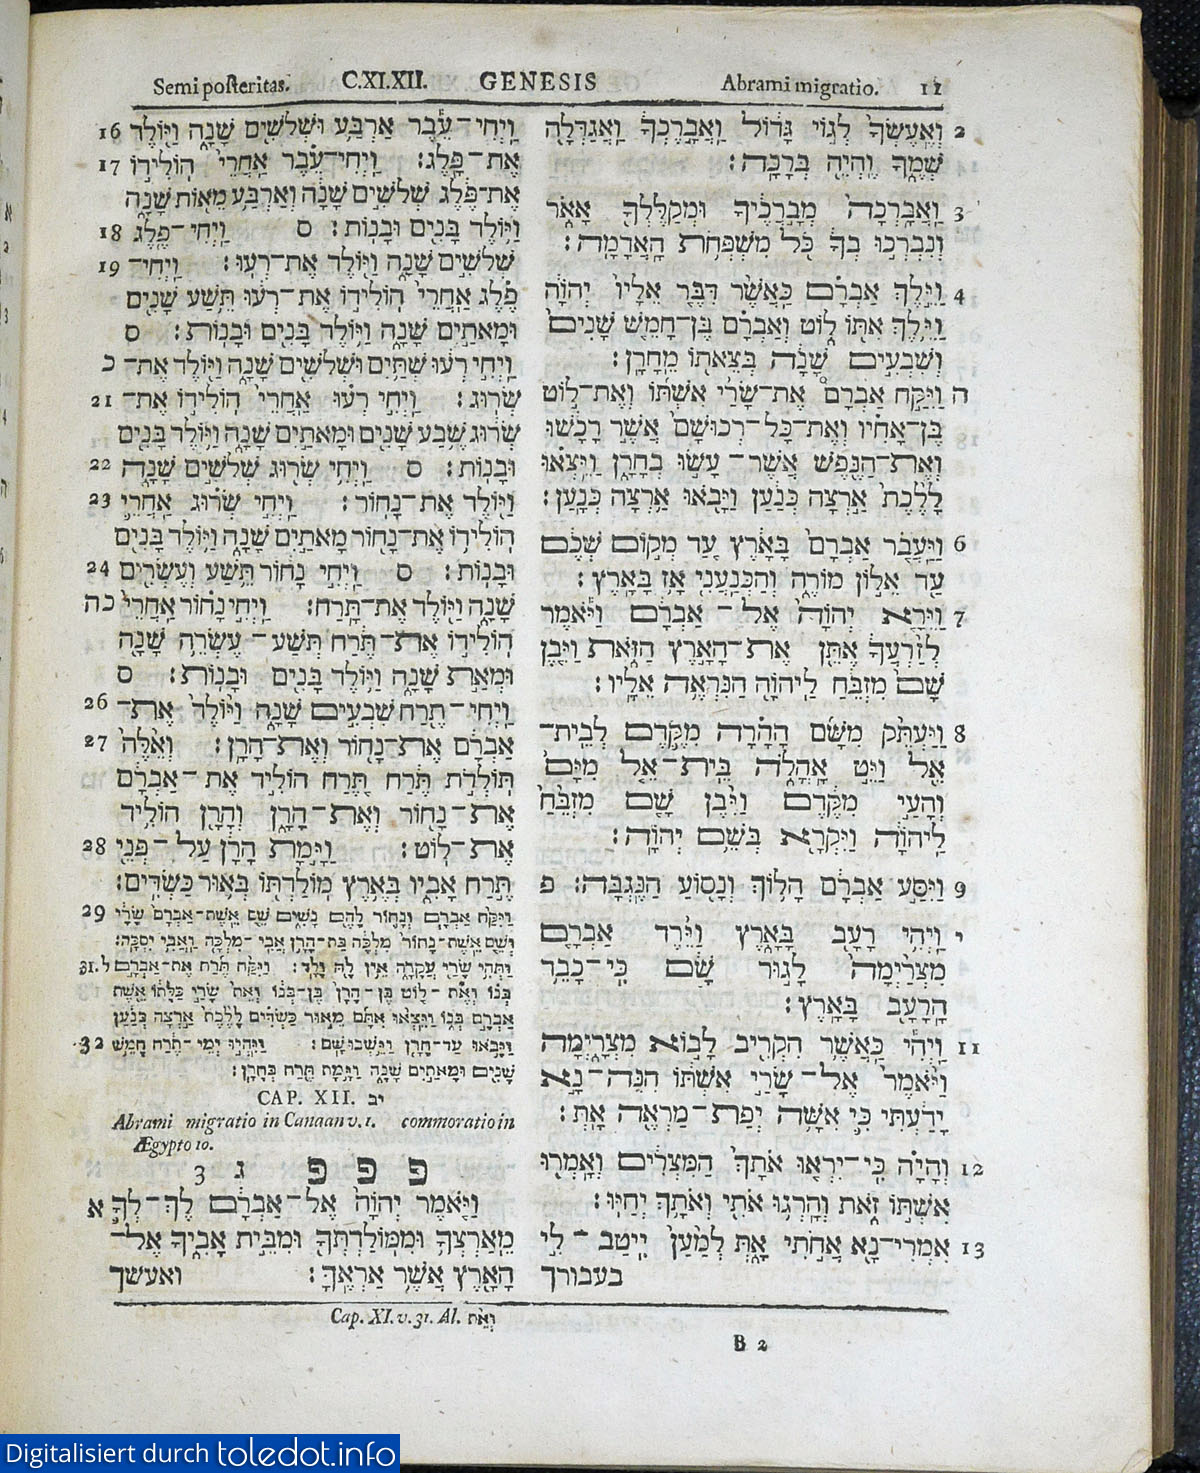 Semi posteritas. C.XI.XII. GENESIS Abrami migratio. 11
וַיְחִי־עֵבֶר אַרְבַּע וּשְׁלֹשִׁים שָׁנָה וַיּוֹלֶד 16
אֶת־פָּלֶג׃ וַיְחִי־עֵבֶר אַחֲרֵי הוֹלִידוֹ 17
אֶת־פֶּלֶג שְׁלֹשִׁים שָׁנָה וְאַרְבַּע מֵאוֹת שָׁנָה
וַיּוֹלֶד בָּנִים וּבָנוֹת׃ ס וַיְחִי־פֶלֶג 18
שְׁלֹשִׁים שָׁנָה וַיּוֹלֶד אֶת־רְעוּ׃ וַיְחִי־ 19
פֶלֶג אַחֲרֵי הוֹלִידוֹ אֶת־רְעוּ תֵּשַׁע שָׁנִים
וּמָאתַיִם שָׁנָה וַיּוֹלֶד בָּנִים וּבָנוֹת׃ ס
וַיְחִי רְעוּ שְׁתַּיִם וּשְׁלֹשִׁים שָׁנָה וַיּוֹלֶד אֶת־ כ
שְׂרוּג׃ וַיְחִי רְעוּ אַחֲרֵי הוֹלִידוֹ אֶת־ 21
שְׂרוּג שֶׁבַע שָׁנִים וּמָאתַיִם שָׁנָה וַיּוֹלֶד בָּנִים
וּבָנוֹת׃ ס וַיְחִי שְׂרוּג שְׁלֹשִׁים שָׁנָה 22
וַיּוֹלֶד אֶת־נָחוֹר׃ וַיְחִי שְׂרוּג אַחֲרֵי 23
הוֹלִידוֹ אֶת־נָחוֹר מָאתַיִם שָׁנָה וַיּוֹלֶד בָּנִים
וּבָנוֹת׃ ס וַיְחִי נָחוֹר תֵּשַׁע וְעֶשְׂרִים 24
שָׁנָה וַיּוֹלֶד אֶת־תָּרַח׃ וַיְחִי נָחוֹר אַחֲרֵי כה
הוֹלִידוֹ אֶת־תֶּרַח תְּשַׁע־עֶשְׂרֵה שָׁנָה
וּמְאַת שָׁנָה וַיּוֹלֶד בָּנִים וּבָנוֹת׃ ס
וַיְחִי־תֶרַח שִׁבְעִים שָׁנָה וַיּוֹלֶד אֶת־ 26
אַבְרָם אֶת־נָחוֹר וְאֶת־הָרָן׃ וְאֵלֶּה 27
תּוֹלְדֹת תֶּרַח תֶּרַח הוֹלִיד אֶת־אַבְרָם
אֶת־נָחוֹר וְאֶת־הָרָן וְהָרָן הוֹלִיד
אֶת־לוֹט׃ וַיָּמָת הָרָן עַל־פְּנֵי 28
תֶּרַח אָבִיו בְּאֶרֶץ מוֹלַדְתּוֹ בְּאוּר כַּשְׂדִּים׃
וַיִּקַּח אַבְרָם וְנָחוֹר לָהֶם נָשִׁים שֵׁם אֵשֶׁת־אַבְרָם שָׂרָי 29
וְשֵׁם אֵשֶׁת־נָחוֹר מִלְכָּה בַּת־הָרָן אֲבִי־מִלְכָּה וַאֲבִי יִסְכָּה׃
וַתְּהִי שָׂרַי עֲקָרָה אֵין לָהּ וָלָד׃ וַיִּקַּח תֶּרַח אֶת־אַבְרָם ל.31
בְּנוֹ וְאֶת־לוֹט בֶּן־הָרָן בֶּן־בְּנוֹ וְאֵת שָׂרַי כַּלָּתוֹ אֵשֶׁת
אַבְרָם בְּנוֹ וַיֵּצְאוּ אִתָּם מֵאוּר כַּשְׂדִּים לָלֶכֶת אַרְצָה כְּנַעַן
וַיָּבֹאוּ עַד־חָרָן וַיֵּשְׁבוּ שָׁם׃ וַיִּהְיוּ יְמֵי־תֶרַח חָמֵשׁ 32
שָׁנִים וּמָאתַיִם שָׁנָה וַיָּמָת תֶּרַח בְּחָרָן׃
CAP. XII. יב
Abrami migratio in Canaan v. 1. commoratio in
Ægypto 10.
פ פ פ ג 3
וַיֹּאמֶר יְהוָה אֶל־אַבְרָם לֶךְ־לְךָ א
מֵאַרְצְךָ וּמִמּוֹלַדְתְּךָ וּמִבֵּית אָבִיךָ אֶל־
הָאָרֶץ אֲשֶׁר אַרְאֶךָּ׃ ואעשך
2 וְאֶעֶשְׂךָ לְגוֹי גָּדוֹל וַאֲבָרֶכְךָ וַאֲגַדְּלָה
שְׁמֶךָ וֶהְיֵה בְּרָכָה׃
3 וַאֲבָרְכָה מְבָרְכֶיךָ וּמְקַלֶּלְךָ אָאֹר
וְנִבְרְכוּ בְךָ כֹּל מִשְׁפְּחֹת הָאֲדָמָה׃
4 וַיֵּלֶךְ אַבְרָם כַּאֲשֶׁר דִּבֶּר אֵלָיו יְהוָה
וַיֵּלֶךְ אִתּוֹ לוֹט וְאַבְרָם בֶּן־חָמֵשׁ שָׁנִים
וְשִׁבְעִים שָׁנָה בְּצֵאתוֹ מֵחָרָן׃
ה וַיִּקַּח אַבְרָם אֶת־שָׂרַי אִשְׁתּוֹ וְאֶת־לוֹט
בֶּן־אָחִיו וְאֶת־כָּל־רְכוּשָׁם אֲשֶׁר רָכָשׁוּ
וְאֶת־הַנֶּפֶשׁ אֲשֶׁר־עָשׂוּ בְחָרָן וַיֵּצְאוּ
לָלֶכֶת אַרְצָה כְּנַעַן וַיָּבֹאוּ אַרְצָה כְּנָעַן׃
6 וַיַּעֲבֹר אַבְרָם בָּאָרֶץ עַד מְקוֹם שְׁכֶם
עַד אֵלוֹן מוֹרֶה וְהַכְּנַעֲנִי אָז בָּאָרֶץ׃
7 וַיֵּרָא יְהוָה אֶל־אַבְרָם וַיֹּאמֶר
לְזַרְעֲךָ אֶתֵּן אֶת־הָאָרֶץ הַזֹּאת וַיִּבֶן
שָׁם מִזְבֵּחַ לַיהוָה הַנִּרְאֶה אֵלָיו׃
8 וַיַּעְתֵּק מִשָּׁם הָהָרָה מִקֶּדֶם לְבֵית־
אֵל וַיֵּט אָהֳלֹה בֵּית־אֵל מִיָּם
וְהָעַי מִקֶּדֶם וַיִּבֶן שָׁם מִזְבֵּחַ
לַיהוָה וַיִּקְרָא בְּשֵׁם יְהוָה׃
9 וַיִּסַּע אַבְרָם הָלוֹךְ וְנָסוֹעַ הַנֶּגְבָּה׃ פ
י וַיְהִי רָעָב בָּאָרֶץ וַיֵּרֶד אַבְרָם
מִצְרַיְמָה לָגוּר שָׁם כִּי־כָבֵד
הָרָעָב בָּאָרֶץ׃
11 וַיְהִי כַּאֲשֶׁר הִקְרִיב לָבוֹא מִצְרָיְמָה
וַיֹּאמֶר אֶל־שָׂרַי אִשְׁתּוֹ הִנֵּה־נָא
יָדַעְתִּי כִּי אִשָּׁה יְפַת־מַרְאֶה אָתְּ׃
12 וְהָיָה כִּי־יִרְאוּ אֹתָךְ הַמִּצְרִים וְאָמְרוּ
אִשְׁתּוֹ זֹאת וְהָרְגוּ אֹתִי וְאֹתָךְ יְחַיּוּ׃
13 אִמְרִי־נָא אֲחֹתִי אָתְּ לְמַעַן יִיטַב־לִי
בעבורך
Cap. XI. v. 31. Al. וְאֵת
B 2
Digitalisiert durch toledot.info